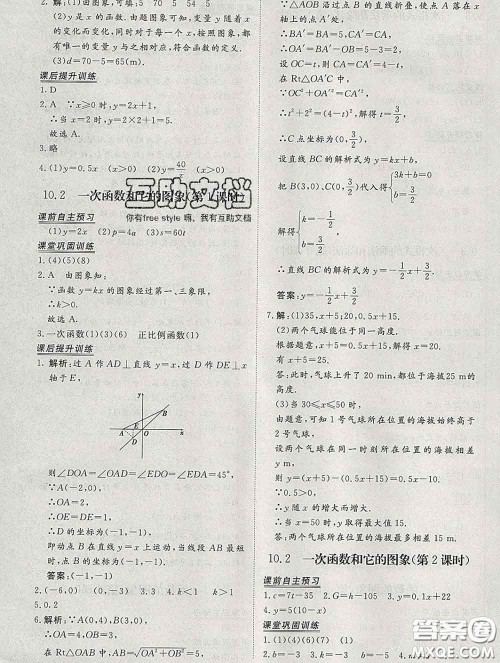 解析:(1)由图象,可填:5 70 54 5
(2)y是x的函数.由图象可知,y随着变量x
的变化而变化,同时对于每一个x,按照图象,
都有唯一的变量y与之对应.符合函数定义.
(3)d=70-5=65(m).
课后提升训练
1. D
2. A ∵x≥0时,y=2x+1,
∴当x=2时,y=2×2+1=5.
故选A.
3. 略
4. (1)y=0.5x (x>0) (2)y=40/x (x>0)
10.2 一次函数和它的图象(第1课时)
互助文档
你有free style 嘛,我有互助文档
课前自主预习
(1)y=2x (2)p=4a (3)s=60t
课堂巩固训练
1. (4)(5)(8)
2. A 由图象知:
∵函数y=kx的图象经过第一、三象限,
∴k>0.
故选A.
3. 一次函数(1)(3)(6) 正比例函数(1)
课后提升训练
1. 解析:过A作AD⊥直线y=x,过D作DE⊥x
轴于E,
y
B
A E O x
D
则∠DOA=∠OAD=∠EDO=∠EDA=45°,
∵A(-2,0),
∴OA=2,
∴OE=DE=1,
∴D的坐标为(-1,-1),
即动点B在直线y=x上运动,当线段AB最短
时,点B的坐标为(-1,-1).
答案:(-1,-1)
5. 0.2
6. 解析:∵A(0,4),B(3,0),
∴OA=4,OB=3,
在Rt△OAB中,AB=√(OA²+OB²)=5.
∵△AOB沿过点B的直线折叠,使点A落在x
轴上的点A′处,
∴BA′=BA=5,CA′=CA,
∴OA′=BA′-OB=5-3=2.
设OC=t,则CA=CA′=4-t,
在Rt△OA′C中,
∵OC²+OA′²=CA′²,
∴t²+2²=(4-t)²,解得t=3/2,
∴C点坐标为(0,3/2),
设直线BC的解析式为y=kx+b,
把B(3,0),C(0,3/2)代入得
解得
∴直线BC的解析式为y=-1/2x+3/2.
答案:y=-1/2x+3/2
7. 解:(1)35,x+5;20,0.5x+15.
(2)两个气球能位于同一高度.
根据题意,x+5=0.5x+15,解得x=20.
有x+5=25.
答:此时,气球上升了20 min,都位于海拔25 m的
高度.
(3)当30≤x≤50时,
由题意,可知1号气球所在位置的海拔始终高于
2号气球.
设两个气球在同一时刻所在位置的海拔相差
y m,
则y=(x+5)-(0.5x+15)=0.5x-10.
∵0.5>0,
∴y随x的增大而增大.
∴当x=50时,y取得最大值15.
答:两个气球所在位置的海拔最多相差15 m.
10.2 一次函数和它的图象(第2课时)
课前自主预习
1. c=7t-35 2. G=h-105 3. y=0.1x+22
4. y=5(10-x)
课堂巩固训练
1. (1)(4)(6)(7) (1)
答案圈
MXQE.COM